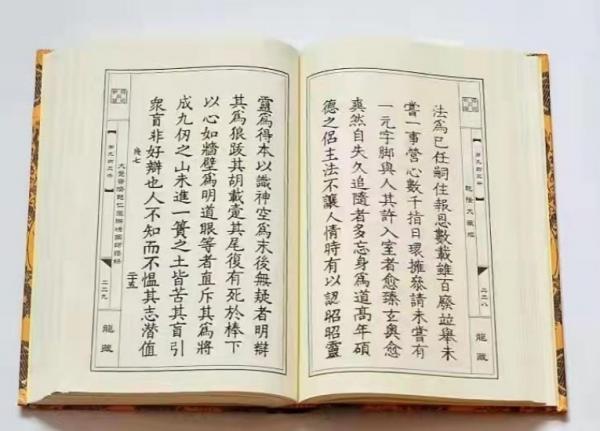 乾隆大藏經
二二八
龍藏
法爲已任嗣住報恩數載雖百廢竝舉未
嘗一事營心數千指日環擁叅請未嘗有
一元字脚與人其許入室者愈臻玄奥愈
爽然自失久追隨者多忘身爲道高年碩
德之侣主法不讓人情時有以認昭昭靈
靈爲得本以識神空爲末後無疑者明辯
其爲狼跋其胡載疐其尾復有死於棒下
以心如牆壁爲明道眼等者直斥其爲將
成九仞之山未進一簣之土皆苦其盲引
衆盲非好辯也人不知而不愠其志潛值
二十五
二二九
龍藏